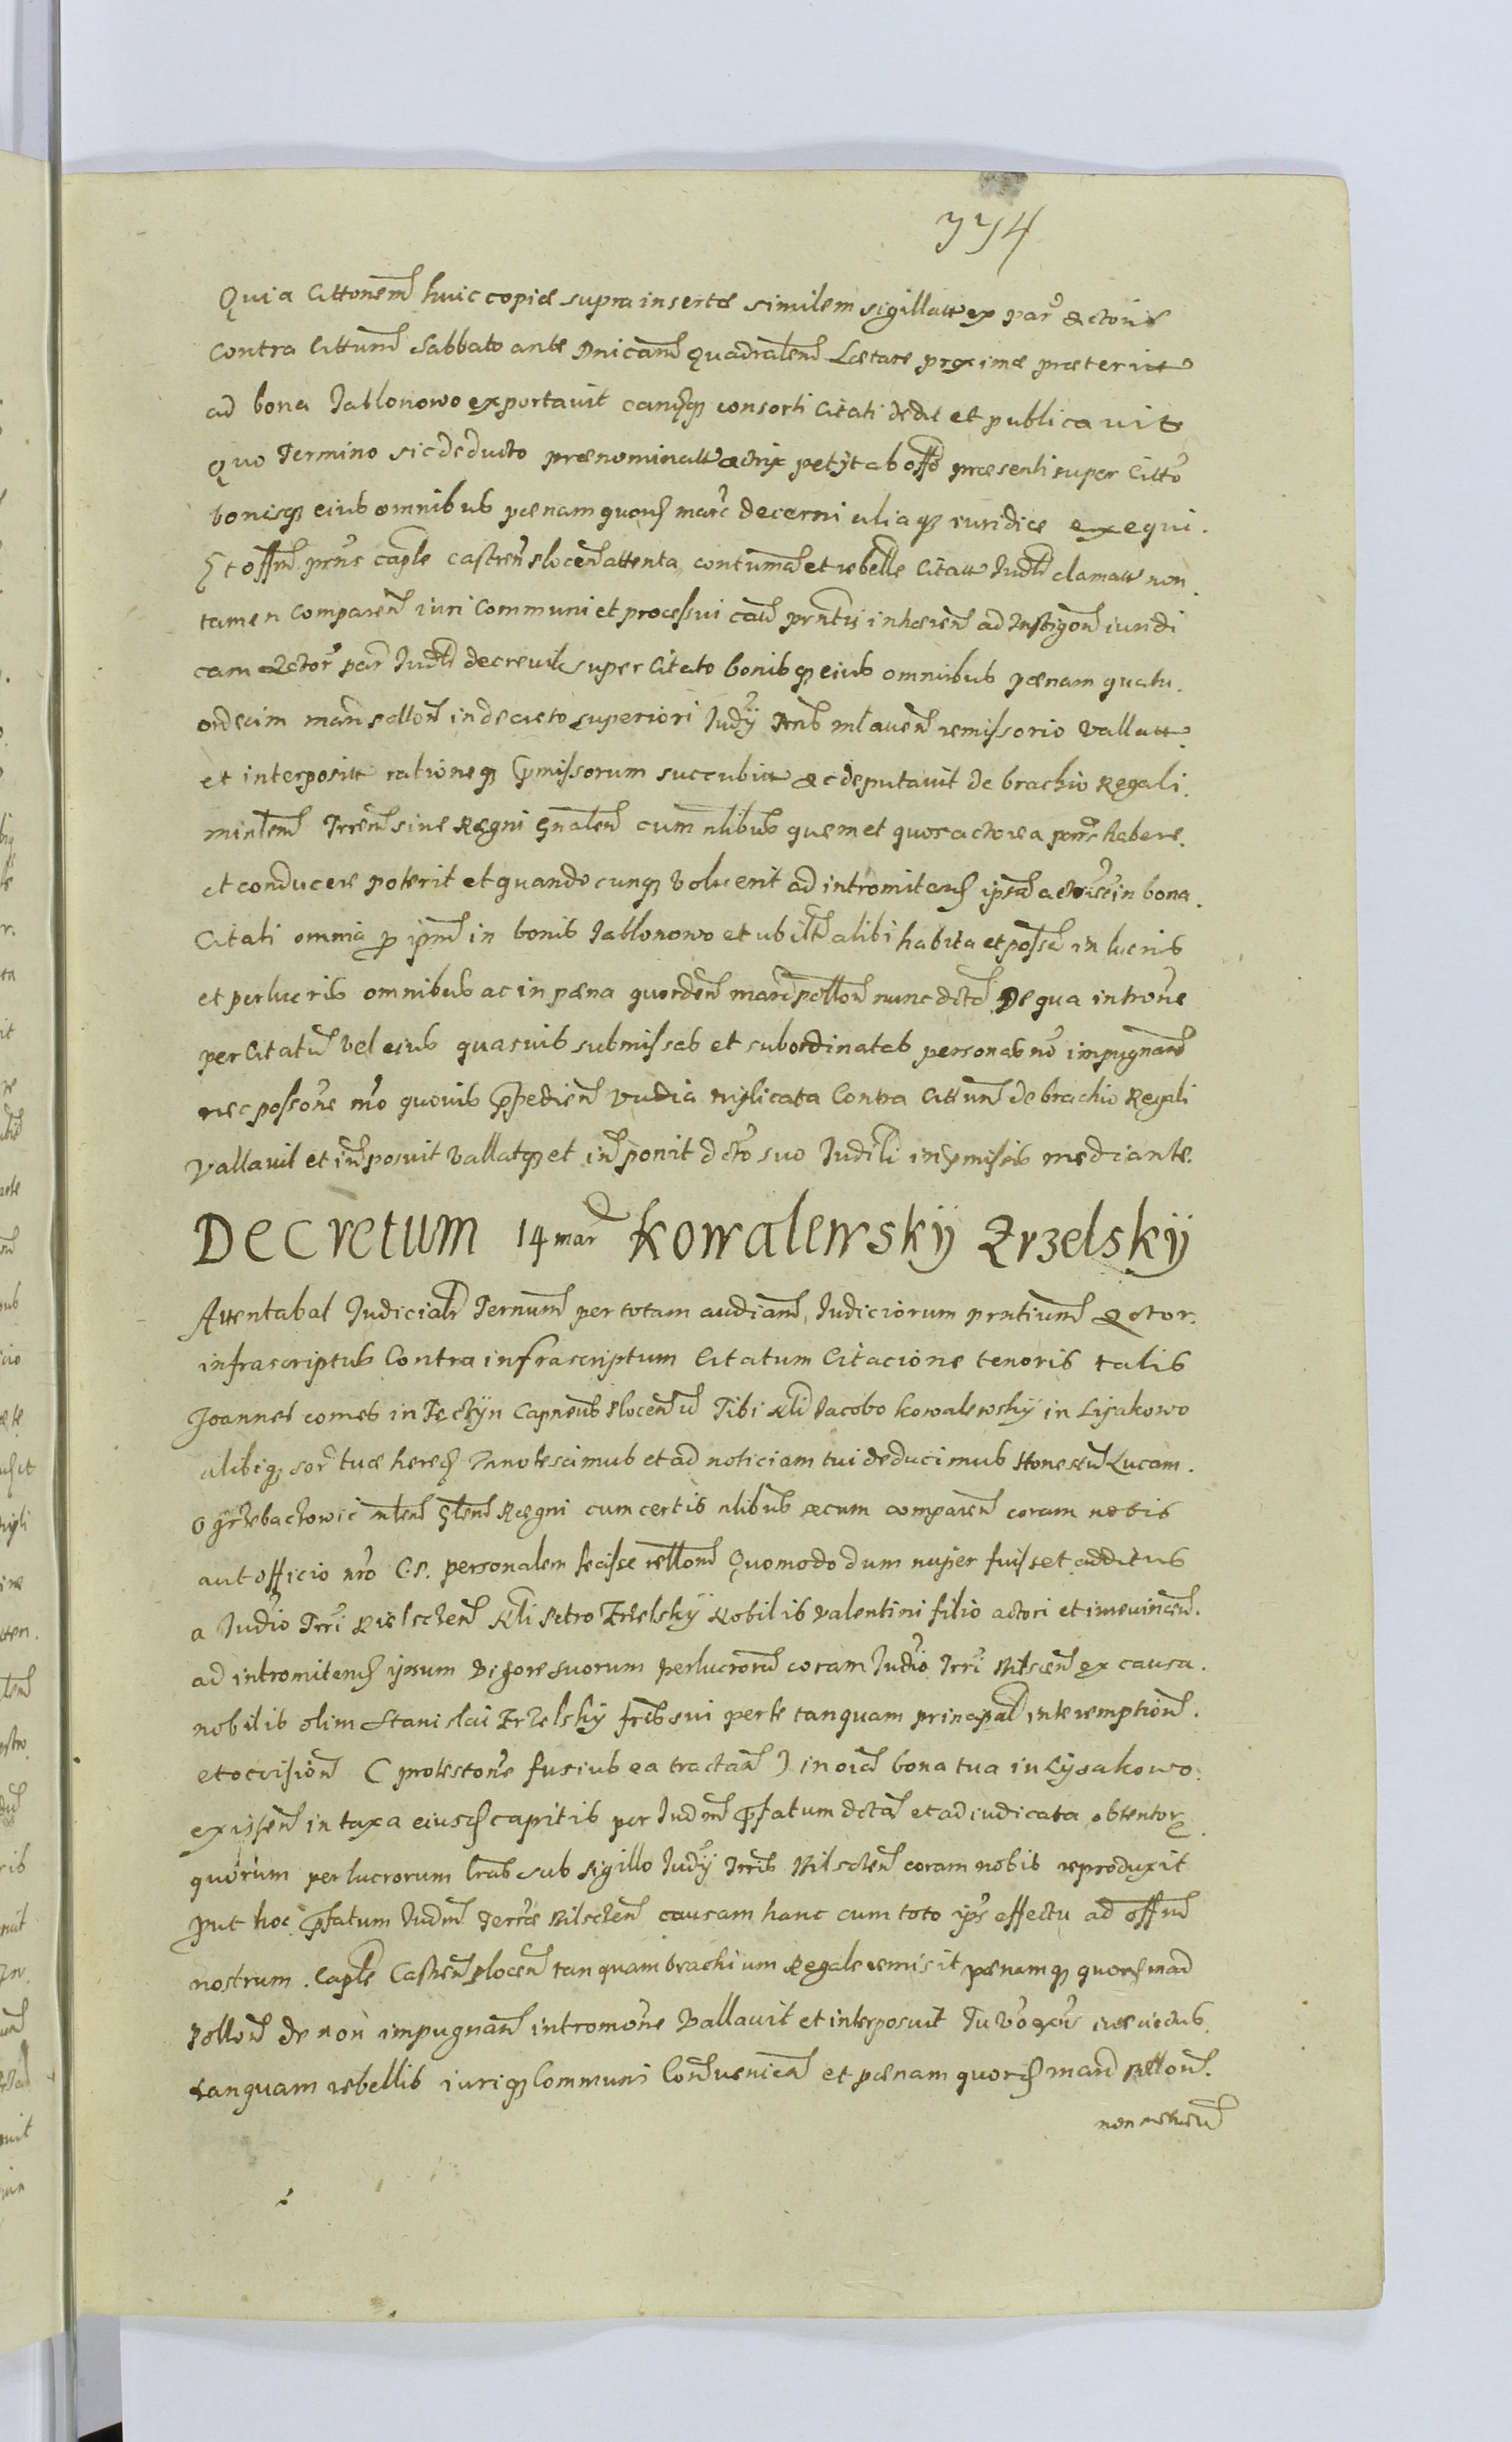 774
Quia Cittonem huic copiæ supra insertæ similem sigillatt ex par actoris
Contra Cittum Sabbato ante Dnicam Quadralem Lætare proxime præteritt
ad bona Jablonowo exportavit eamq consorti Citati dedit et publicavit
Quo Termino sic deducto prænominatt actrix petijt ab offo præsenti super Citto
bonisq eius omnibus pœnam quord marc decerni aliaq iuridice exequi.
Et offm prns caple castren plocen attenta contuma et rebelle Citatt Judlr clamatt non
tamen Comparen iuri Communi et processui cau prntis inhæren ad Instigon iuridi
cam Actor par Judlr decrevit super Citato bonisq eius omnibus pœnam quatu.
ordecim mar pollon in decreto superiori Judy Trris mlaven remissorio Vallatt
et interpositt rationeq pmissorum succubitt ac deputavit de brachio Regali
minlem Trren sive Regni Gnalen cum nlibus quem et quos actorea pars habere.
et conducere poterit et quandocunq voluerit ad intromitend ipsam actorice in bona.
Citati omnia p ipm in bonis Jablonowo et ubilt alibi habita et possa in lucris
et perlucris omnibus ac in pœna quorden mar pollon nunc dcta De qua introne
per Citatu vel eius quasvis submissas et subordinatas personas no impugnand
nec possone mo quovis ppedien vadia triplicata Contra Cittum de brachio Regali
Vallavit et inposuit vallatq et inponit dcto suo Judili in pmissis mediante.
Decretum 14 mar Kowalewskÿ Zrzelskÿ
Attentabat Judicialr Ternum per totam audiam, Judiciorum prntium Actor.
infrascriptus Contra infrascriptum Citatum Citacione tenoris talis
Joannes comes in Tęczyn Capneus plocen Tibi Nli Jacobo Kowalewskÿ in Lisakowo
alibiq sor tuæ hered Innotescimus et ad noticiam tui deducimus Honestu Lucam.
Ogrzebachowic mlen Glen Regni cum certis nlibus secum comparen coram nobis
aut officio nro C.P. personalem fecisse rellom Quomodo dum nuper fuisset additus
a Judio Trri Bielschen Nli Petro Zrzelskÿ Nobilis Valentini filio actori et iurevincen.
ad intromitend ipsum Vigore suorum perlucroru coram Judio Trri Bilscen ex causa.
nobilis olim Stanislai Zrzelskÿ fris sui per te tanquam principal interemption.
et occision ( protestone fusius ea tractan ) in oia bona tua in Lysakowo.
existen in taxa eiusd capitis per Judm pfatum dcta et adiudicata obtentor
quorum perlucrorum lras sub sigillo Judy Trris Bilschen coram nobis reproduxit
put hoc pfatum Judm Terræ Bilschen causam hanc cum toto ips effectu ad offm
nostrum. Caple Castren plocen tanquam brachium Regale remisit pœnamq quord mar
Pollon de non impugnan intromone Vallavit et interposuit Tu vo iurevictus
tanquam rebellis iuriq Communi Convenien et pœnam quord mar Pollon.
non